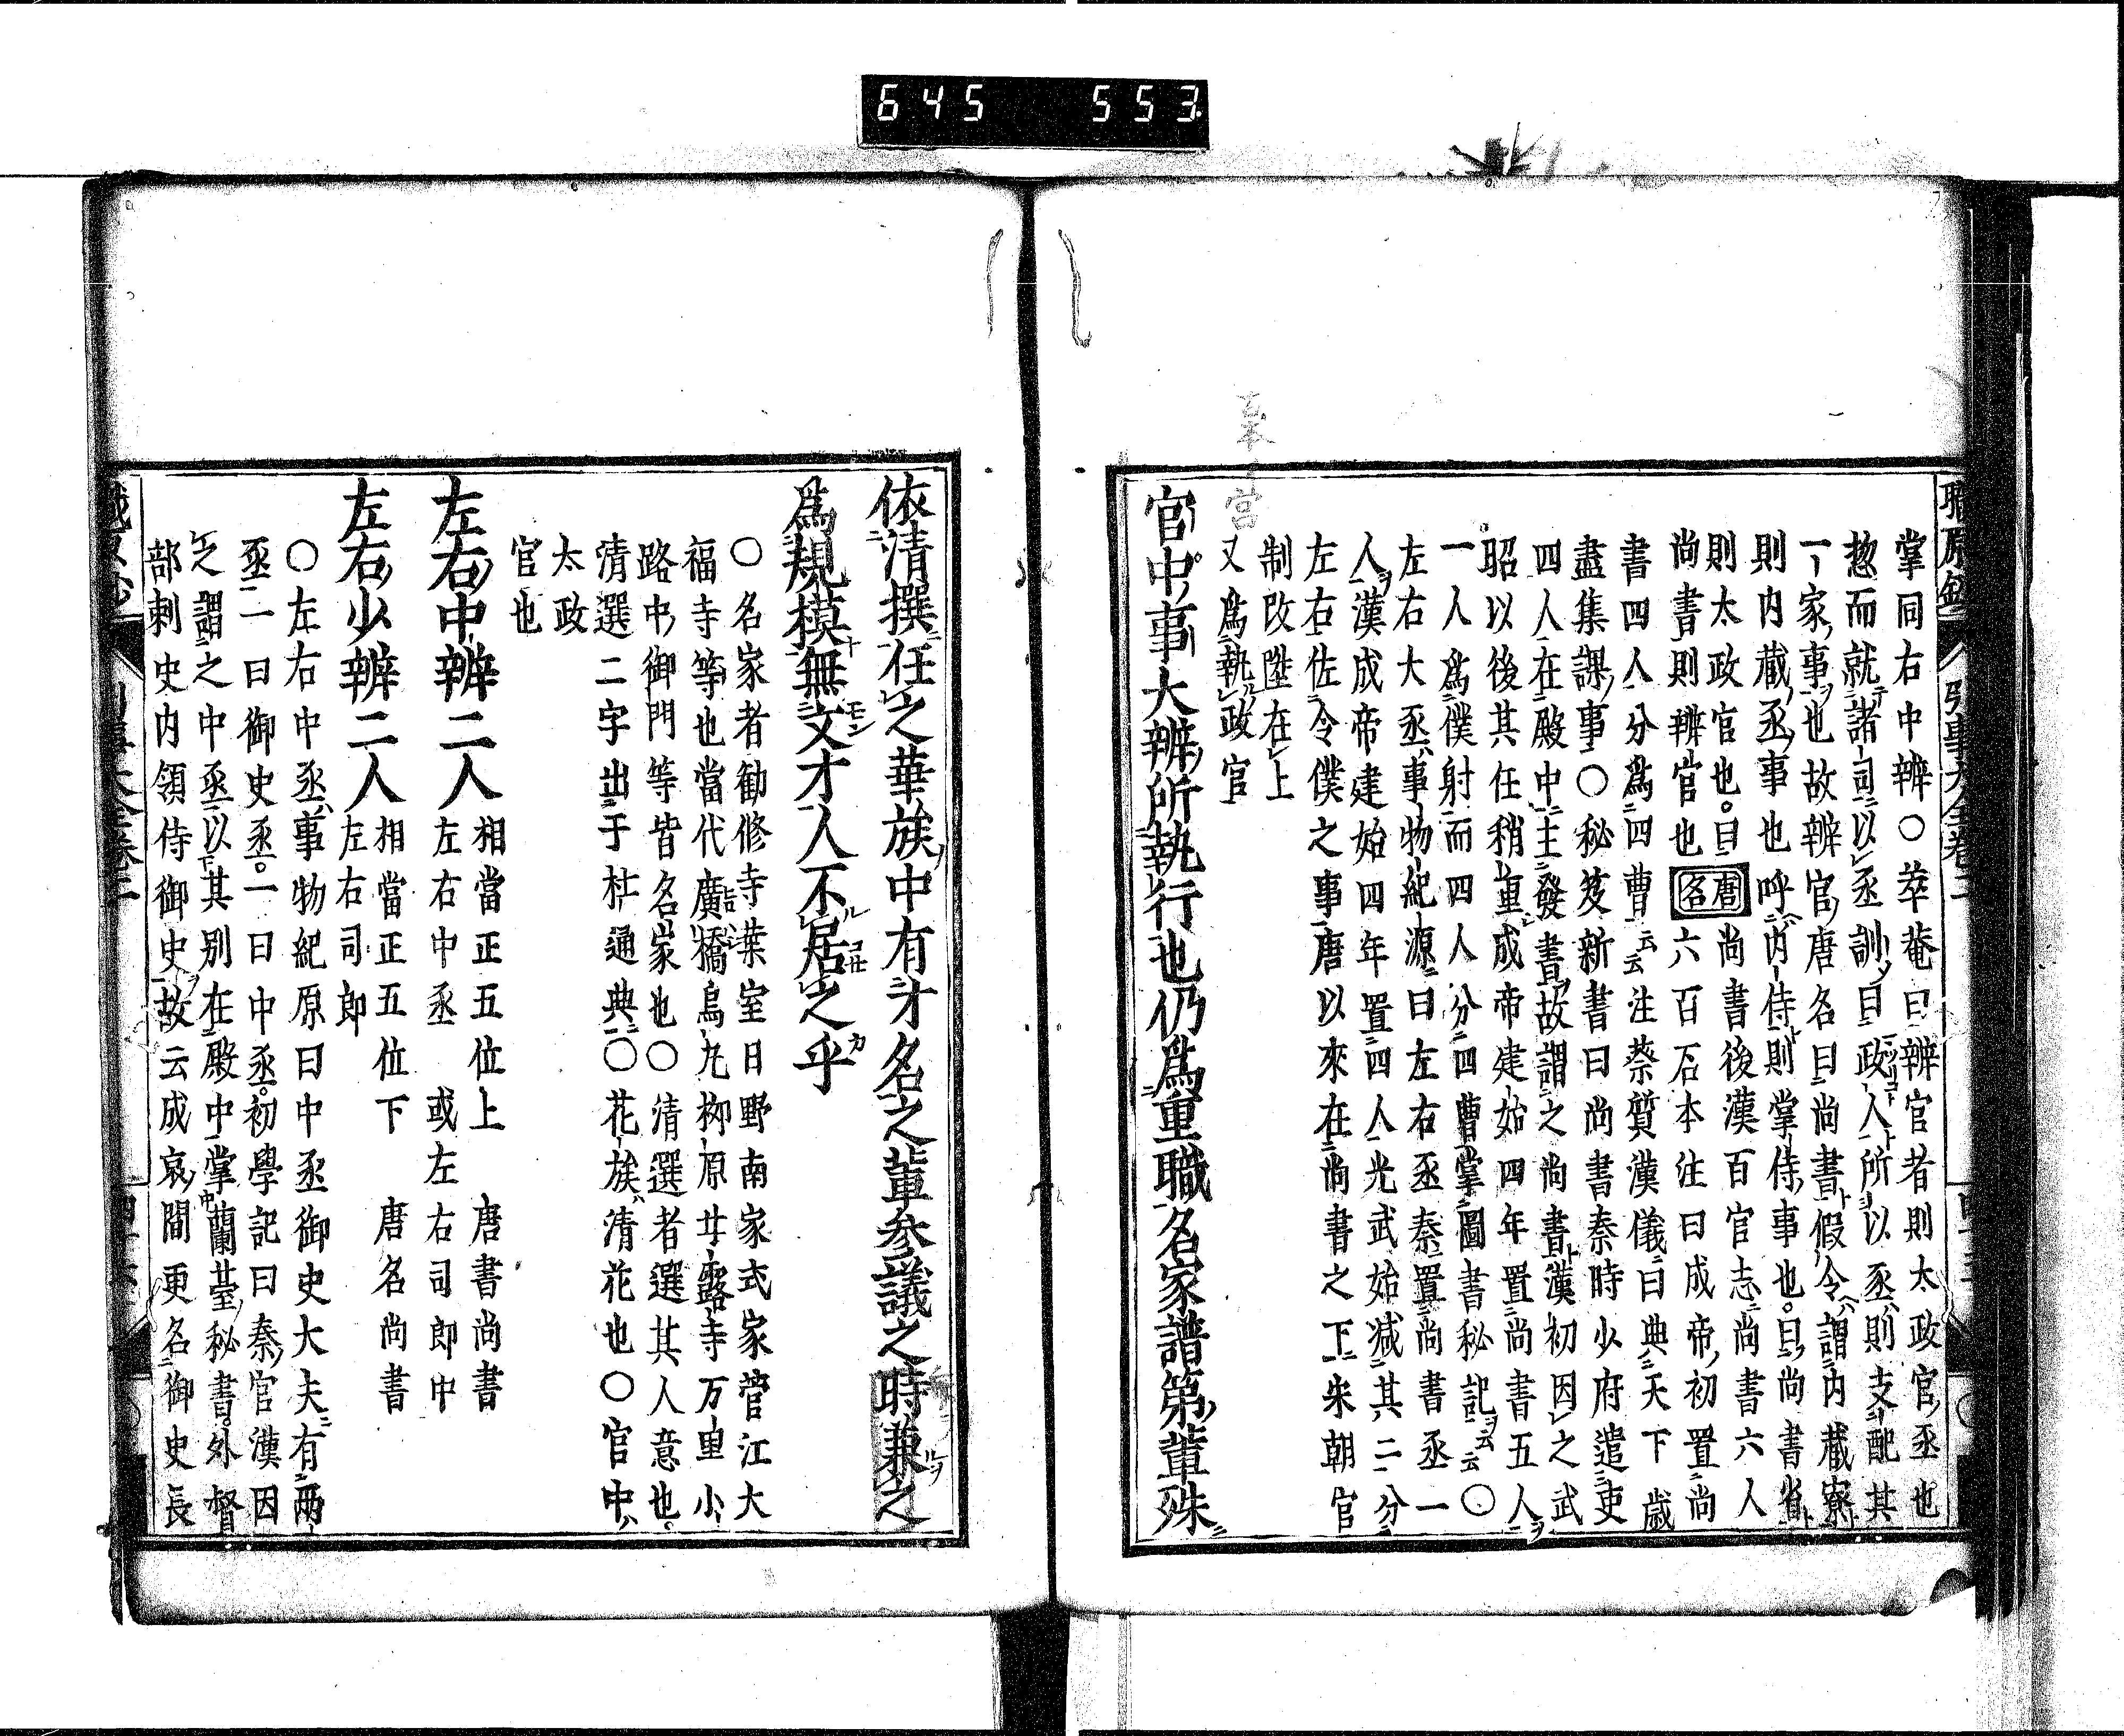 645 553
掌同右中辨○莘菴曰辨官者則太政官丞也
惣而就諸司以丞訓曰政人所以丞則支配其
一家事也故辨官唐名曰尚書假令謂内藏寮
則内藏丞事也呼内侍則掌侍事也曰尚書省
則太政官也曰唐名尚書後漢百官志尚書六人
尚書則辨官也六百石本注曰成帝初置尚
書四人分爲四曹云云注蔡質漢儀曰典天下歲
盡集課事○秘笈新書曰尚書秦時少府遣吏
四人在殿中主發書故謂之尚書漢初因之武
昭以後其任稍重成帝建始四年置尚書五人
一人爲僕射而四人分四曹掌圖書秘記云云○
左右大丞事物紀源曰左右丞秦置尚書丞一
人漢成帝建始四年置四人光武始减其二分
左右佐令僕之事唐以來在尚書之下朱朝官
制改陞在上
又爲執政官
官中事大辨所執行也仍爲重職名家譜第輩殊
依清撰任之華族中有才名之輩參議之時兼之
爲規模無文才人不居之乎
○名家者勸修寺葉室日野南家式家菅江大
福寺等也當代廣橋烏丸栁原甘露寺万里小
路中御門等皆名家也○清選者選其人意也
清選二字出于杜通典○花族清花也○官中
太政
官也
左右中辨二人 相當正五位上 唐書尚書
左右中丞 或左右司郎中
左右少辨二人 相當正五位下 唐名尚書
左右司郎
○左右中丞事物紀原曰中丞御史大夫有兩
丞一曰御史丞一曰中丞初學記曰秦官漢因
之謂之中丞以其别在殿中掌蘭臺秘書外督
部刺史内領侍御史故云成哀間更名御史長